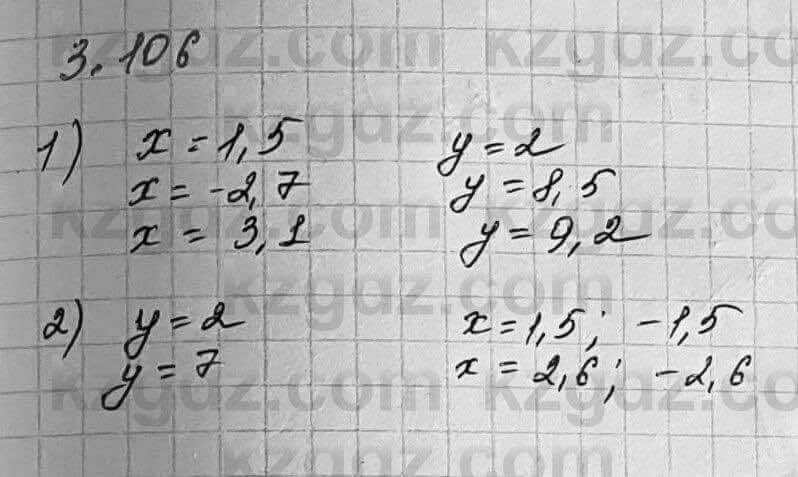 3.106
1) x = 1,5 y = 2
x = -2,7 y = 8,5
x = 3,1 y = 9,2
2) y = 2 x = 1,5; -1,5
y = 7 x = 2,6; -2,6
kzgdz.com